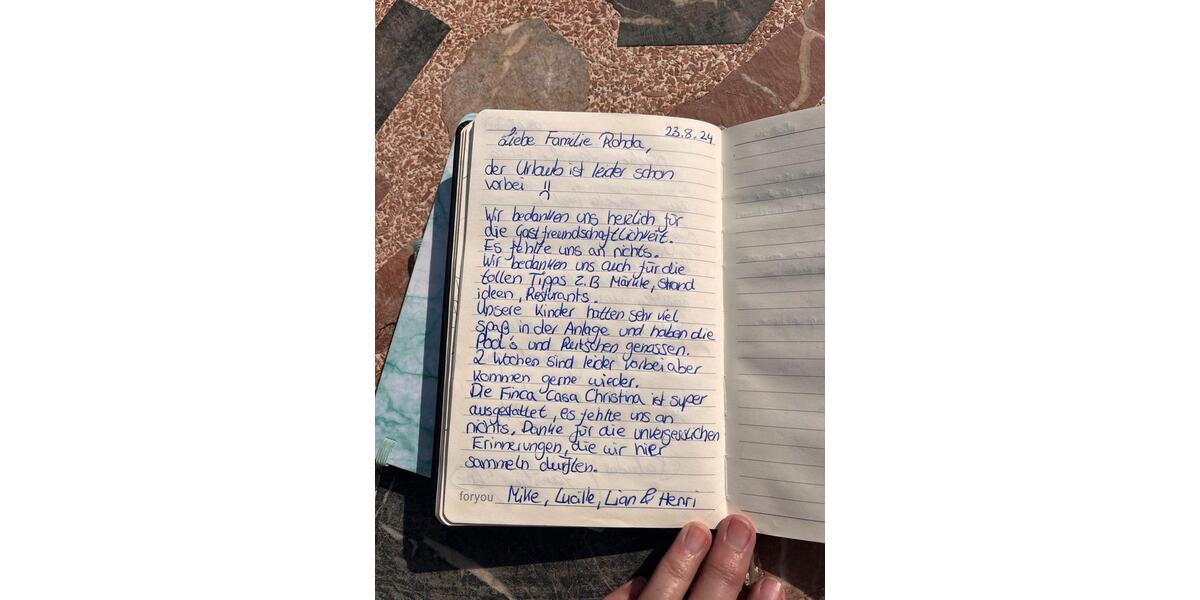 23.8.24
Liebe Familie Rohda,
der Urlaub ist leider schon
vorbei !!
Wir bedanken uns herzlich für
die Gastfreundschaftlichkeit.
Es fehlte uns an nichts.
Wir bedanken uns auch für die
tollen Tipps z.B Märkte, Strand
ideen, Resturants.
Unsere Kinder hatten sehr viel
spaß in der Anlage und haben die
Pool's und Rutschen genossen.
2 Wochen sind leider vorbei aber
kommen gerne wieder.
Die Finca Casa Christina ist super
ausgestattet, es fehlte uns an
nichts. Danke für die unvergesslichen
Erinnerungen, die wir hier
sammeln durften.
foryou Mike, Lucille, Lian & Henri